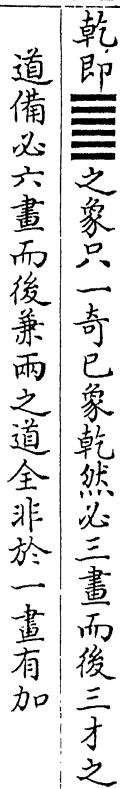 乾即䷀之象只一奇已象乾然必三畫而後三才之
道備必六畫而後兼兩之道全非於一畫有加